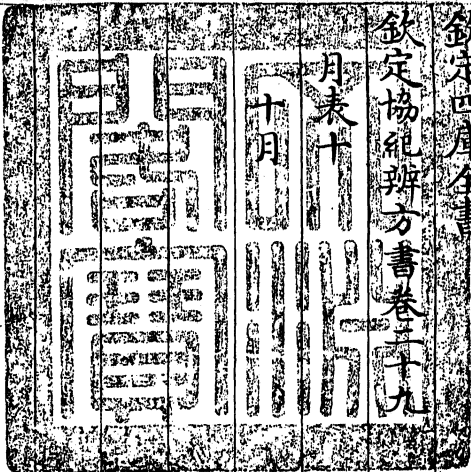 欽定四庫全書
欽定協紀辨方書卷二十九
月表十
十月
文淵閣寶